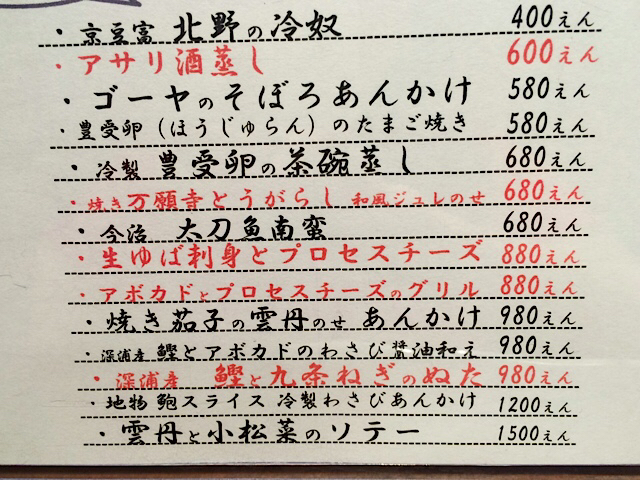 ・京豆富 北野の冷奴 400えん
・アサリ酒蒸し 600えん
・ゴーヤのそぼろあんかけ 580えん
・豊受卵(ほうじゅらん)のたまご焼き 580えん
・冷製 豊受卵の茶碗蒸し 680えん
・焼き万願寺とうがらし 和風ジュレのせ 680えん
・今治 太刀魚南蛮 680えん
・生ゆば刺身とプロセスチーズ 880えん
・アボカドとプロセスチーズのグリル 880えん
・焼き茄子の雲丹のせ あんかけ 980えん
・深浦産 鰹とアボカドのわさび醤油和え 980えん
・深浦産 鰹と九条ねぎのぬた 980えん
・地物 鮑スライス 冷製わさびあんかけ 1200えん
・雲丹と小松菜のソテー 1500えん